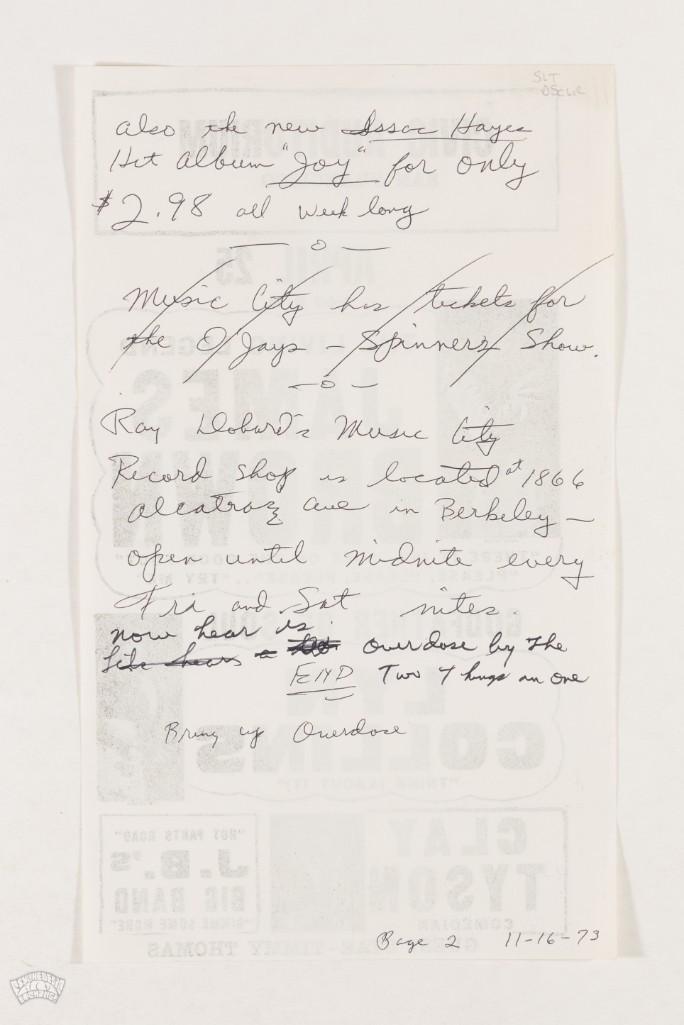 also the new Issac Hayes
Hit Album "Joy" for only
$2.98 all week long
— o —
Music City has tickets for
the O'Jays — Spinners Show.
— o —
Ray Dobard's Music City
Record Shop is located at 1866
Alcatraz Ave in Berkeley —
open until midnite every
Fri and Sat nites.
now hear is
overdose by The
END Two Things in one
Bring up Overdose
Page 2 11-16-73
APRIL 25
JAMES
BROWN
LYN
COLLINS
"THINK (ABOUT IT)"
CLAY
TYSON
COMEDIAN
"HOT PANTS ROAD"
J.B.'s
BIG BAND
"GIMME SOME MORE"
TIMMY THOMAS